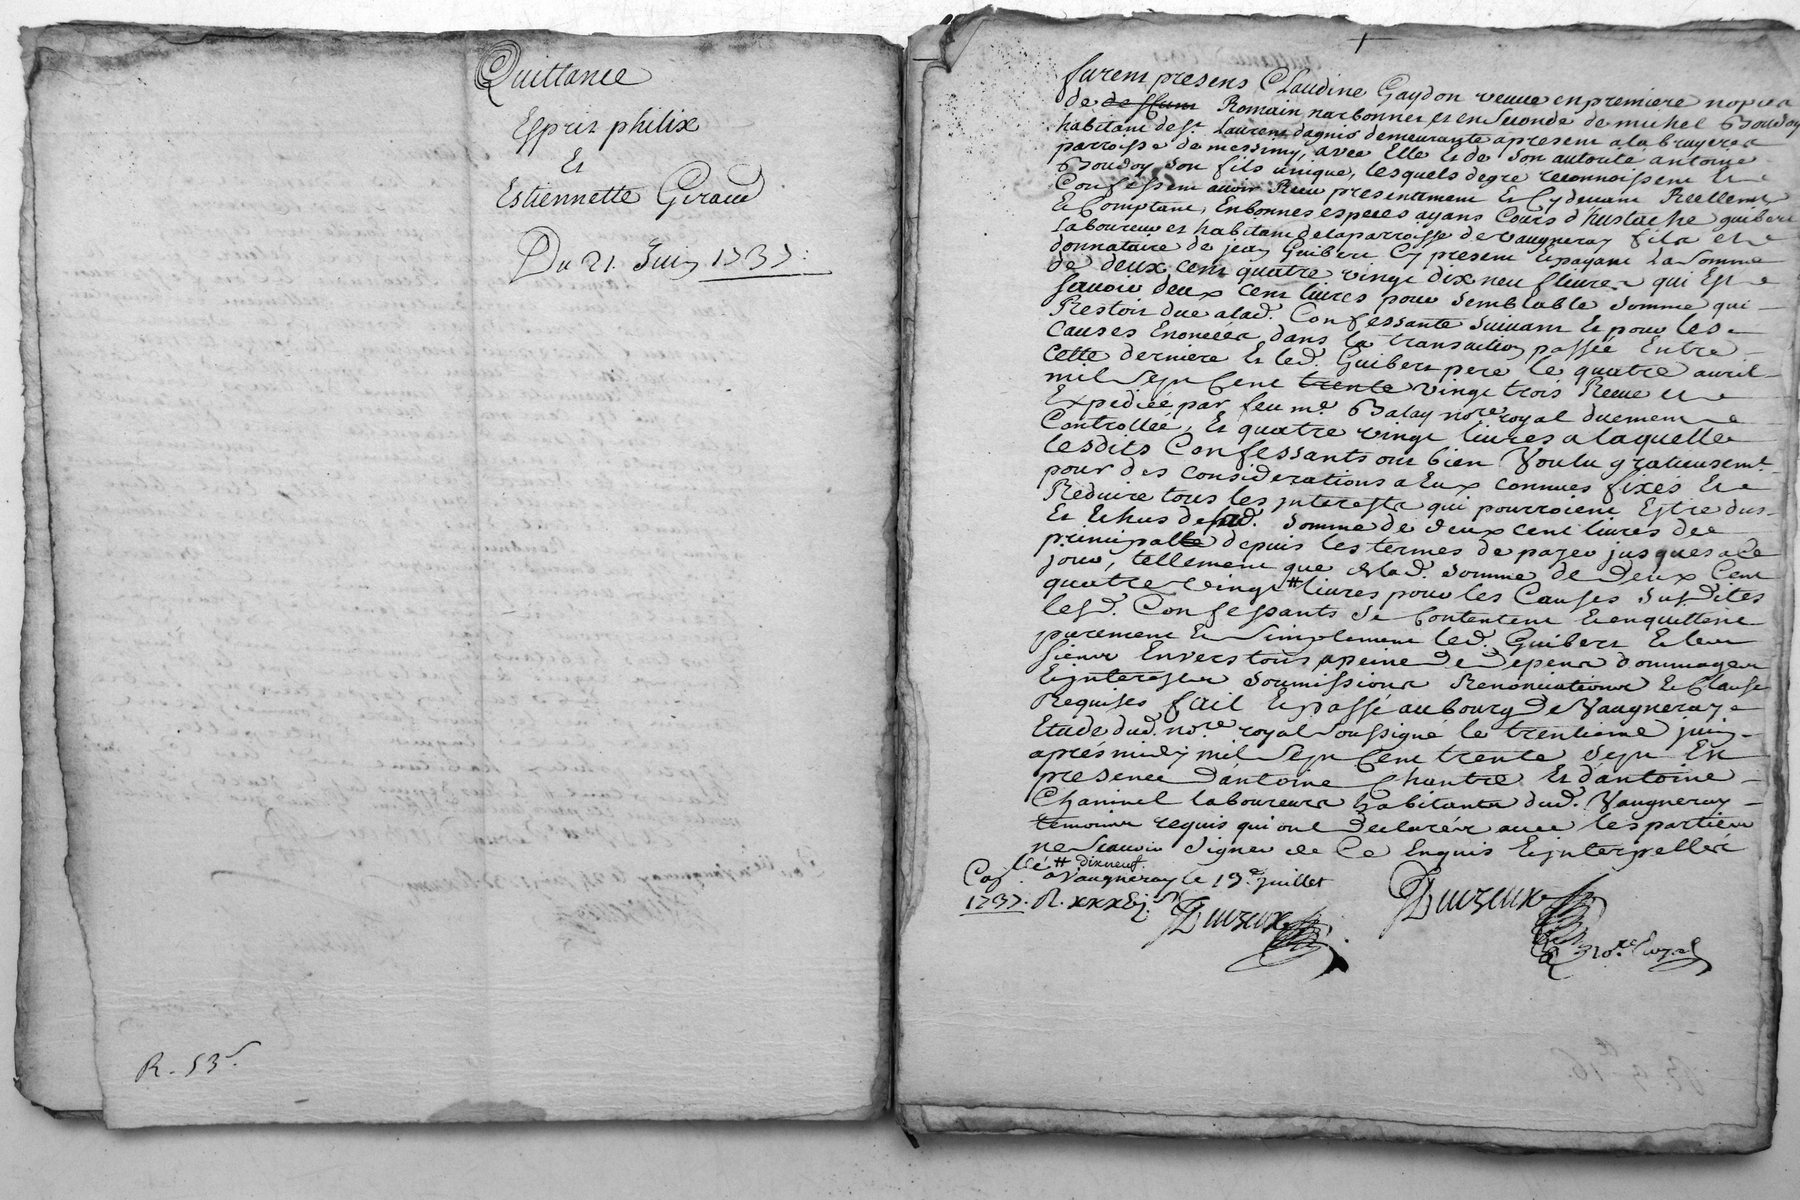 Quittance
Esprit philix
Et
Estiennette Giraud
Du 21. Juin 1737.
R. 53s
furent presens Claudine Gaydon veuve en premiere nopces
de deffunt Romain narbonnet et en seconde de michel Boudoy
habitant de st. Laurent dagnis demeurante apresent a la bruyere
parroisse de messimy, avec Elle et de son autorité antoine
Boudoy son fils unique, lesquels degre reconnoissent Et
Confessent avoir Receu presentement Et Cy devant Reellement
Et Comptant, En bonnes especes ayans Cours d'Eustache guibert
Laboureur et habitant de la parroisse de vaugneray fils et
donnataire de jean Guibert Cy present Et payant la somme
de deux cent quatre vingt dix neuf livres qui Est
savoir deux cent livres pour semblable somme qui
Restoit due alad. Confessante suivant Et pour les
causes Enoncées dans la transaction passée Entre
cette derniere Et led. Guibert pere le quatre avril
mil sept Cent trente vingt trois Receue et
Expediée par feu me. Balay nore royal duement
Controllée, Et quatre vingt livres a laquelle
lesdits Confessants ont bien Voulu gratieusemt.
pour des considerations a Eux connues fixés Et
Reduire tous les interests qui pourroient Estre dus
Et Echus de lad. somme de deux cent livres de
principalle depuis les termes de payer jusques a ce
jour, tellement que de lad. somme de deux Cent
quatre vingt # livres pour les Causes susdites
lesd. Confessants se Contentent Et enquittent
purement Et simplement led. Guibert Et les
siens Envers tous a peine de depens dommages
Et interests soumissions Renonciations Et Clause
Requises fait Et passé au bourg de Vaugneray
Etude dud. nore royal soussigné le trentieme juin
aprés midy mil sept Cent trente sept En
presence d'antoine Chantre Et d'antoine
Chaninel laboureurs habitants dud. Vaugneray
temoins requis qui ont declarés avec les parties
ne scavoir signer de Ce Enquis Et interpellés
# dix neuf.
Coll.é a Vaugneray le 13e juillet
1737. R. xxxvj s